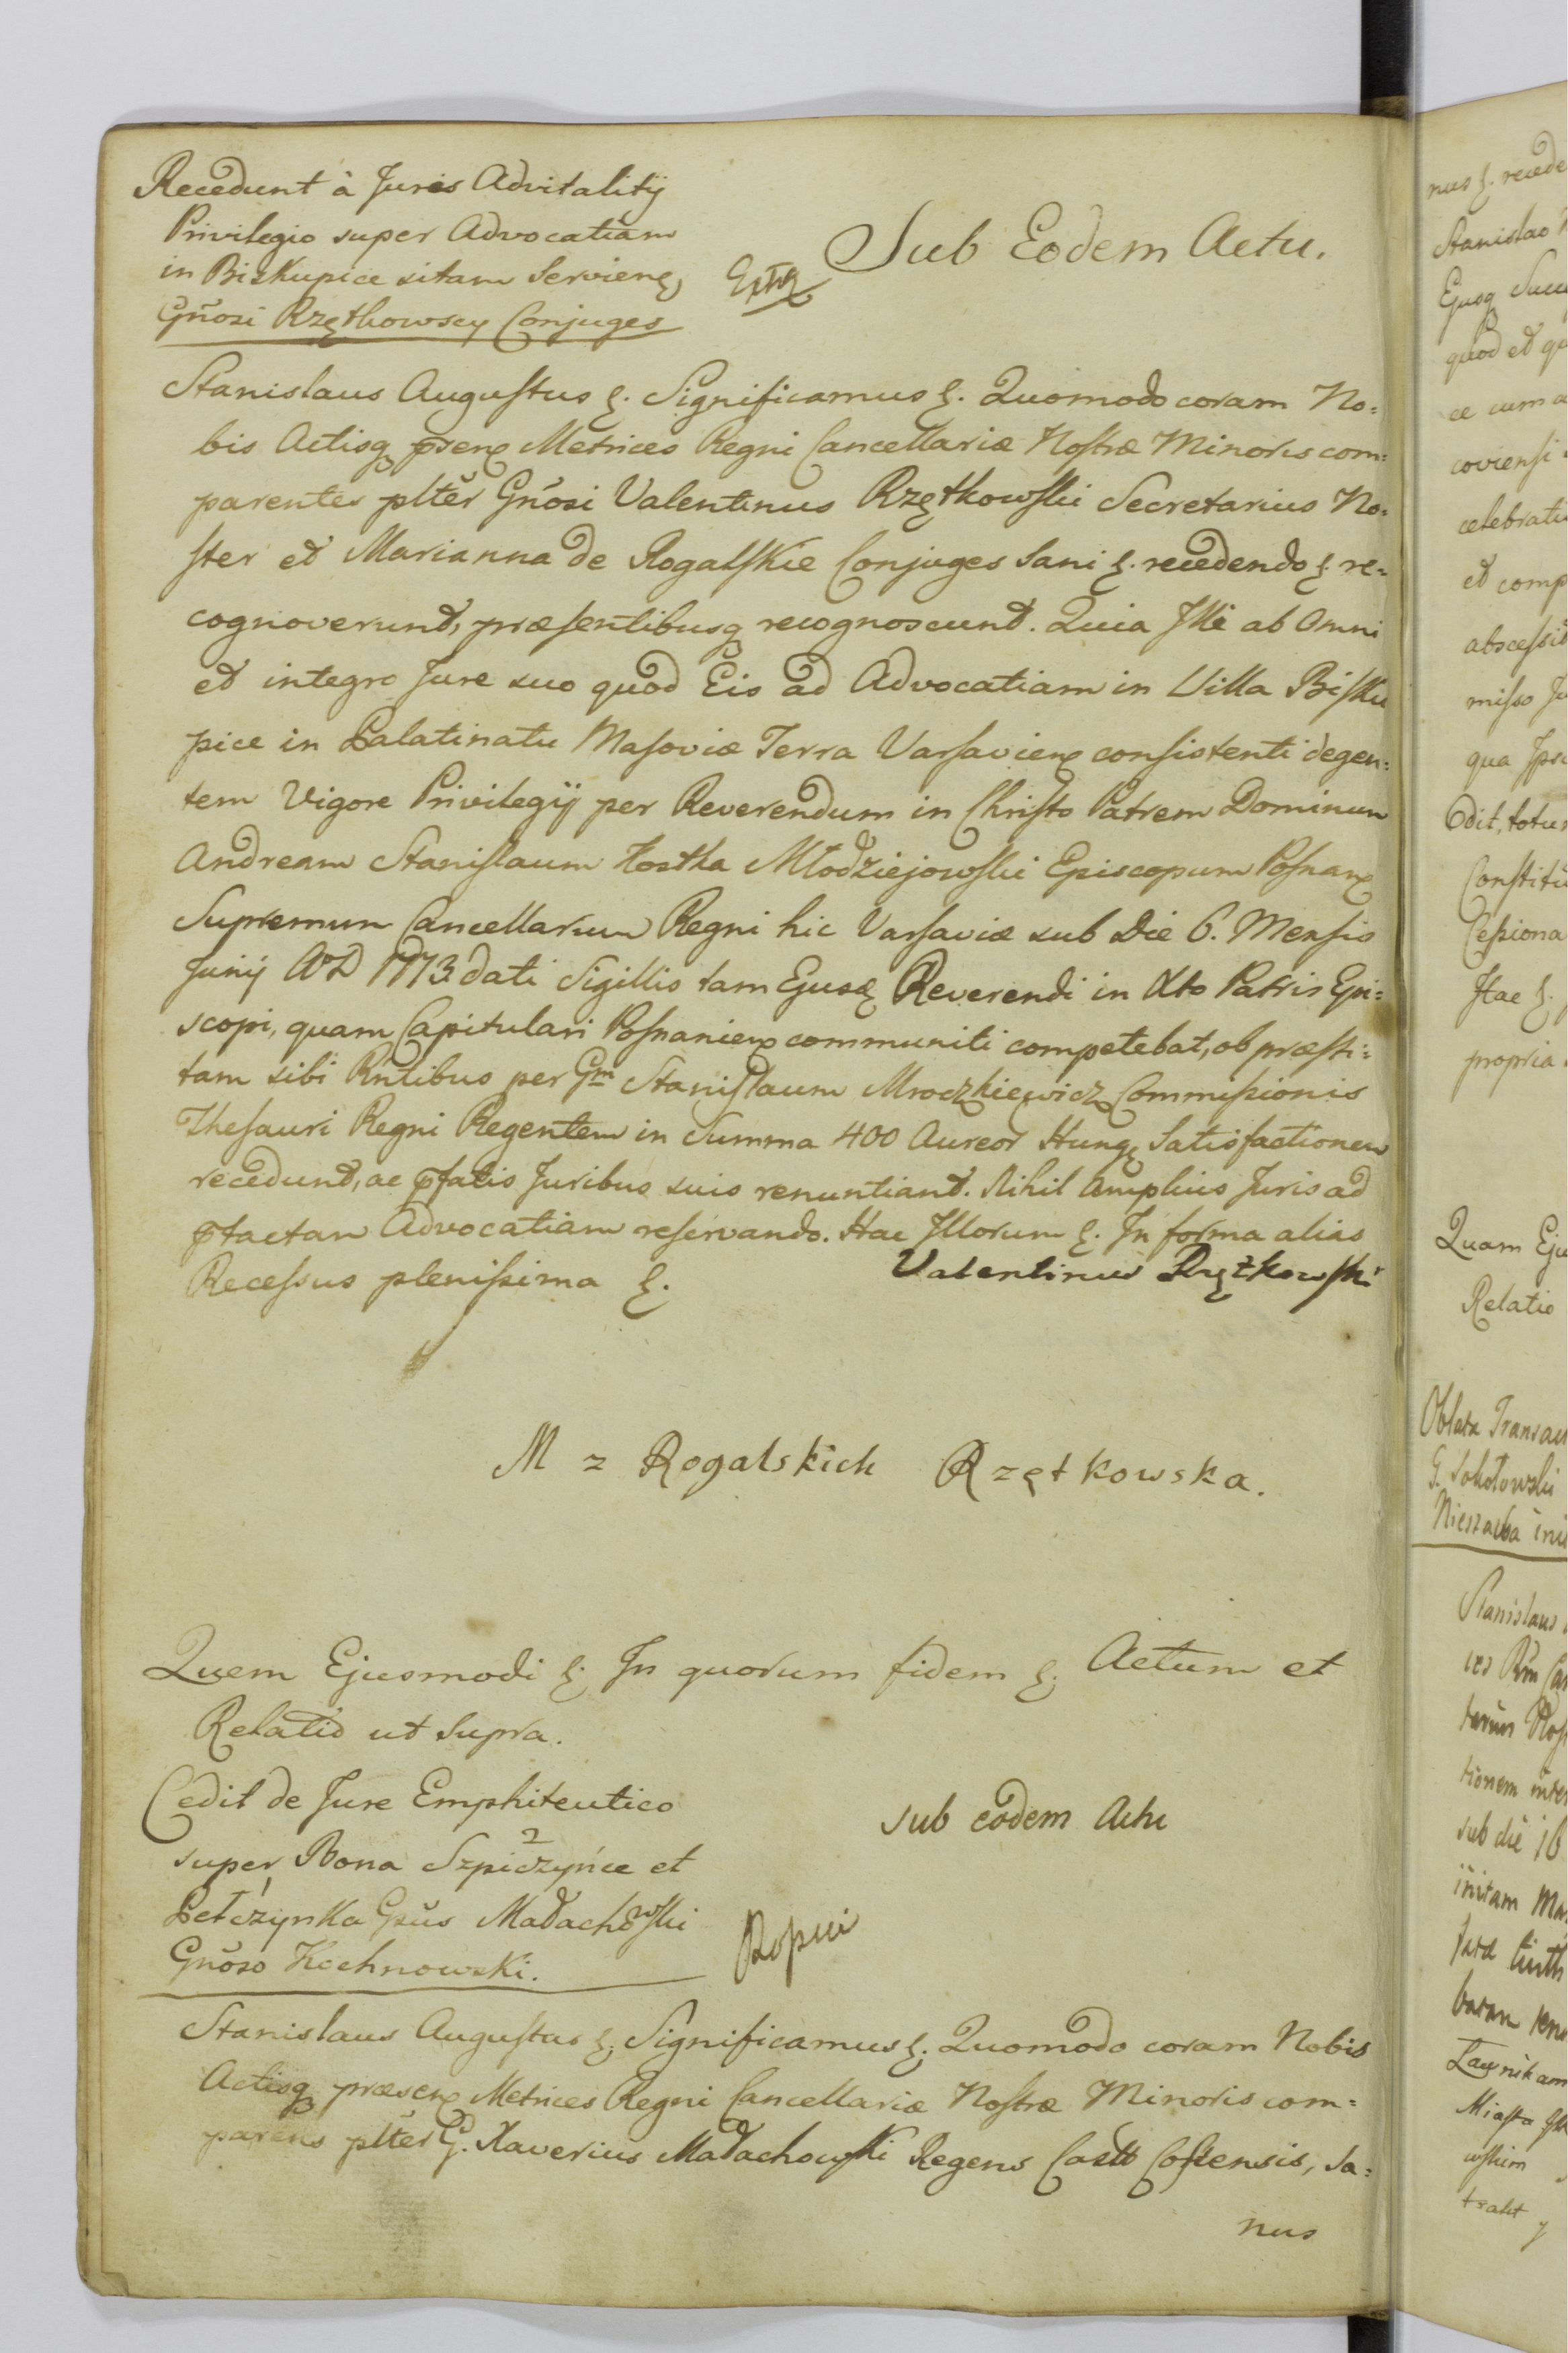 Recedunt à Juris Advitalitÿ
Privilegio super Advocatiam
in Biskupice sitam Servienȩ
Gñosi Rzętkowscy Conjuges
Extȩ
Sub Eodem Actu.
Stanislaus Augustus ȩ. Significamus ȩ. Quomodo coram No:
bis Actisq̨ pñsenȩ Metrices Regni Cancellariæ Nostræ Minoris com:
parentes pltěr Gñosi Valentinus Rzętkowski Secretarius No:
ster et Marianna de Rogalskie Conjuges Sani ȩ. recedendo ȩ re:
cognoverunt, præsentibusq̨ recognoscunt. Quia Illi ab Omni
et integro Jure suo quod Eis ad Advocatiam in Villa Bisku
pice in Palatinatu Masoviæ Terra Varsavienȩ consistenti degen:
tem Vigore Privilegÿ per Reverendum in Christo Patrem Dominum
Andream Stanislaum Kostka Młodziejowski Episcopum Posnanȩ
Supremum Cancellarium Regni hic Varsaviæ sub Die 6. Mensis
Junÿ AoD 1773 dati Sigillis tam Ejusdȩ Reverendi in Xto Patris Epi:
scopi, quam Capitulari Posnanienȩ communiti competebat, ob præsti:
tam sibi Rñtibus per Gm Stanislaum Mroczkiewicz Commissionis
Thesauri Regni Regentem in Summa 400 Aureor Hungȩ Satisfactionem
recedunt, ac pfatis Juribus suis renuntiant. Nihil Amplius Juris ad
ptactam Advocatiam reservando. Hac Illorum ȩ. In forma alias
Recessus plenissima ȩ.
Valentinus Rzętkowski
M z Rogalskich Rzętkowska.
Quem Ejusmodi ȩ. In quorum fidem ȩ. Actum et
Relatio ut Supra.
Cedit de Jure Emphiteutico
super Bona Szpiczyńce et
Pełczynka Gñus Małachowski
Gñoso Kochnowski.
sub eodem Actu
Stanislaus Augustus ȩ. Significamus ȩ. Quomodo coram Nobis
Actisq̨ præsenȩ Metrices Regni Cancellariæ Nostræ Minoris com:
parens pltěr G. Xaverius Małachowski Regens Castr Costensis, Sa:
nus
nus ȩ. recede
Stanislao
Ejusq̨ Succ
quod et
ce cum
coviensi
celebrati
et comp
abscessit
misso Ju
qua Ipsi
Odit, totu
Constitu
Cessiona
Hac ȩ.
propria
Quam Eju
Relatio
Oblata Transact
G. Sokołowski
Nieszawa
Stanislaus
sub die 16
Miasta